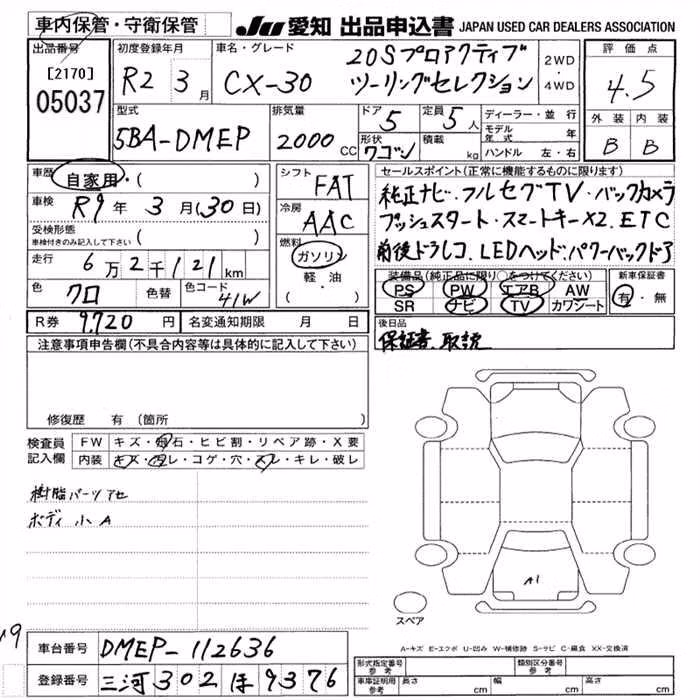 車内保管・守衛保管 JU 愛知 出品申込書 JAPAN USED CAR DEALERS ASSOCIATION
出品番号 初度登録年月 車名・グレード 評価点
[2170] R2 3月 CX-30 20Sプロアクティブ 2WD 4.5
05037 ツーリングセレクション 4WD
型式 排気量 ドア 5 定員 5人 ディーラー・並行 外装 内装
5BA-DMEP 2000CC 形状 ワゴン 積載 kg モデル年式 年 B B
ハンドル 左・右
車歴 自家用・( ) シフト FAT セールスポイント(正常に機能するものに限ります)
車検 R9年3月(30日) 冷房 AAC 純正ナビ・フルセグTV・バックカメラ
受検形態 車検付きのみ記入して下さい ( ) プッシュスタート・スマートキー×2. ETC
走行 6万2千121km 燃料 ガソリン 前後ドラレコ. LEDヘッド・パワーバックドア
軽油
・( )
色 クロ 色替 色コード 41W 装備品(純正品に限り○をつけてください) 新車保証書
PS PW エアB AW 有・無
SR ナビ TV カワシート
R券 9,720円 名変通知期限 月 日 後日品
注意事項申告欄(不具合内容等は具体的に記入して下さい) 保証書、取説
修復歴 有 (箇所 )
検査員 FW キズ・飛石・ヒビ割・リペア跡・X要
記入欄 内装 キズ・汚レ・コゲ・穴・スレ・キレ・破レ
樹脂パーツアセ
ボディ小A
A1
スペア
A-キズ E-エクボ U-凹み W-補修跡 S-サビ C-腐食 XX-交換済
車台番号 DMEP-112636
登録番号 三河302ほ9376
形式指定番号 参考 類別区分番号 参考
車庫証明用 参考 長さ cm 幅 cm 高さ cm